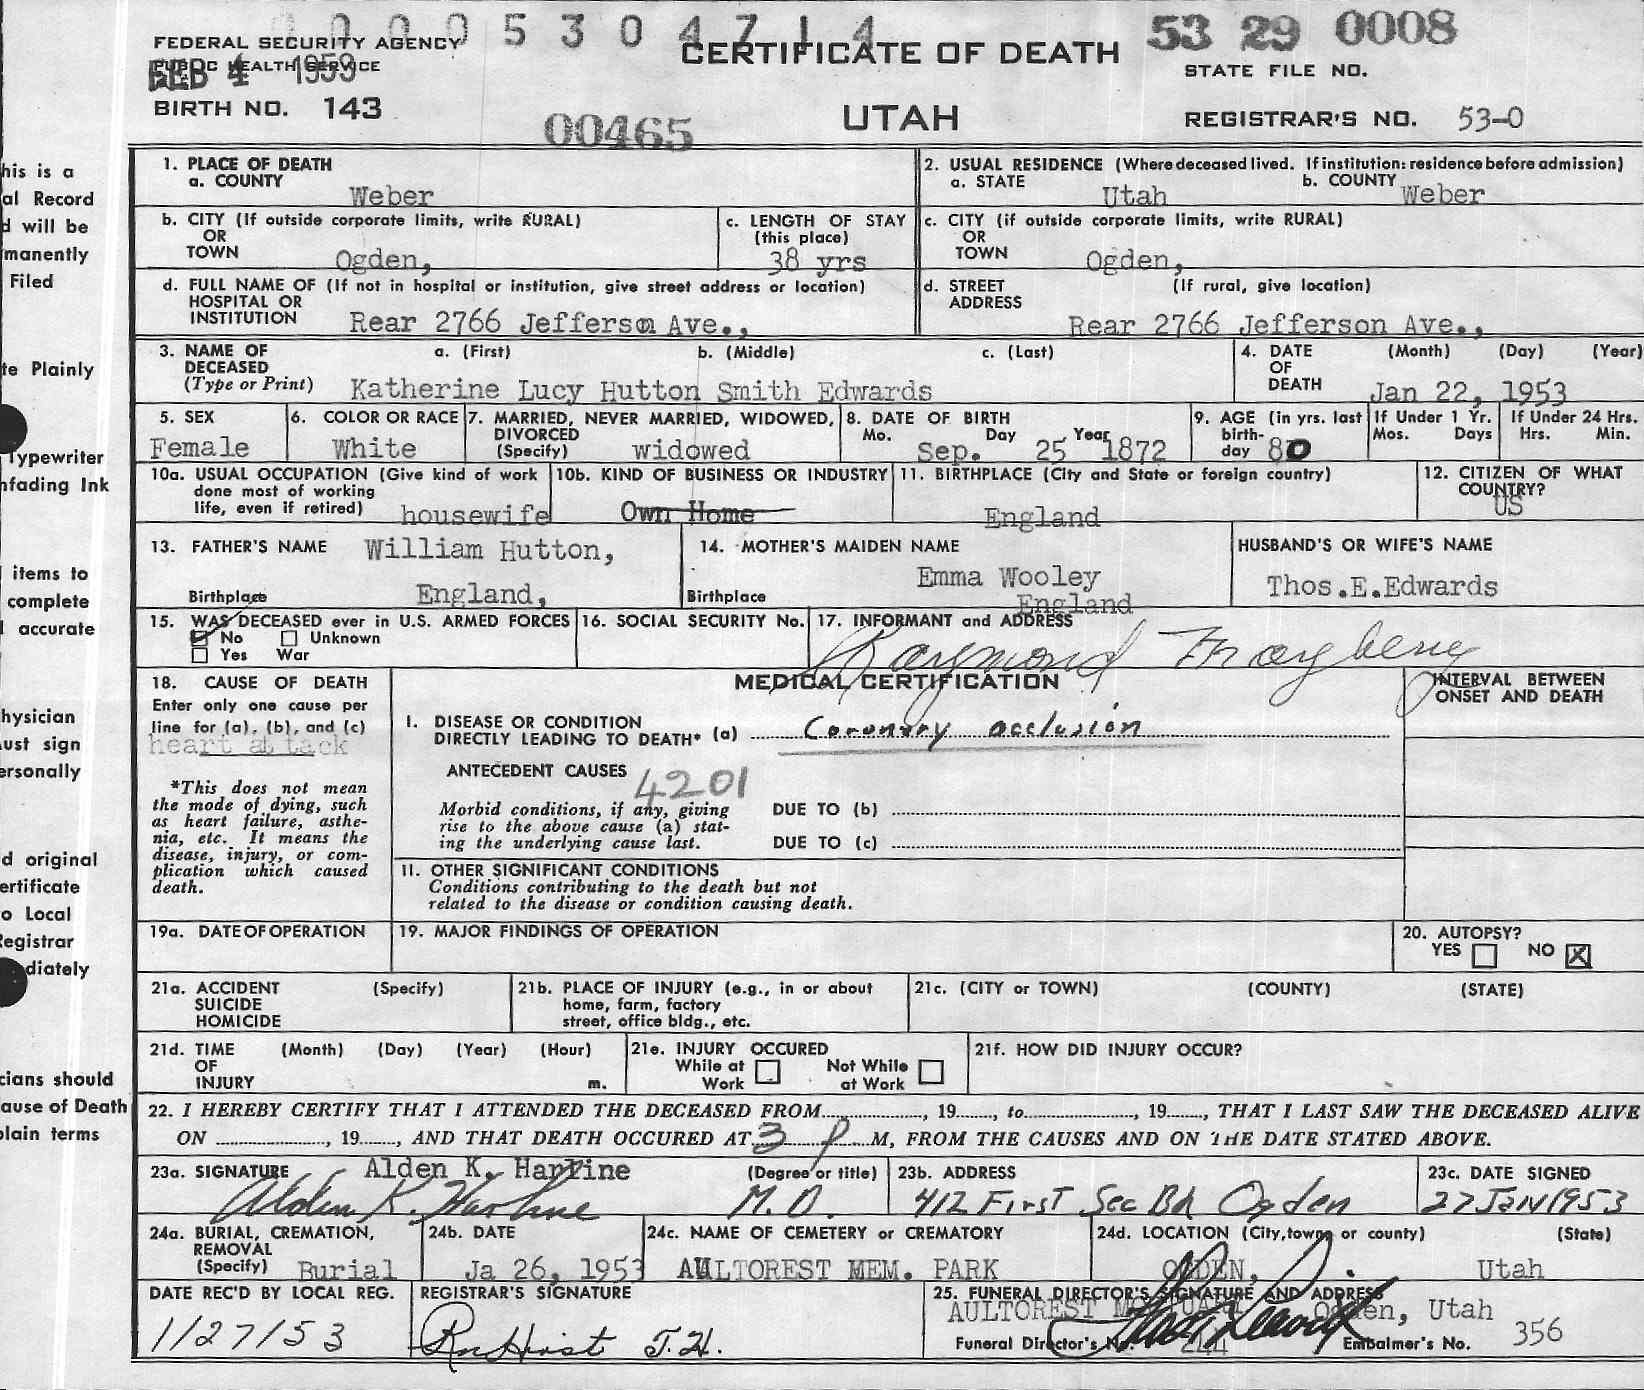 0 0 0 5 3 0 4 7 1 4
53 29 0008
FEDERAL SECURITY AGENCY
CERTIFICATE OF DEATH
PUBLIC HEALTH SERVICE
FEB 4 1953
STATE FILE NO.
BIRTH NO. 143
00465
UTAH
REGISTRAR'S NO. 53-0
his is a
al Record
d will be
manently
Filed
te Plainly
Typewriter
nfading Ink
items to
complete
accurate
hysician
ust sign
ersonally
d original
ertificate
o Local
Registrar
diately
cians should
ause of Death
plain terms
1. PLACE OF DEATH
a. COUNTY Weber
2. USUAL RESIDENCE (Where deceased lived. If institution: residence before admission)
a. STATE Utah b. COUNTY Weber
b. CITY (If outside corporate limits, write RURAL)
OR
TOWN Ogden,
c. LENGTH OF STAY
(this place)
38 yrs
c. CITY (if outside corporate limits, write RURAL)
OR
TOWN Ogden,
d. FULL NAME OF (If not in hospital or institution, give street address or location)
HOSPITAL OR
INSTITUTION Rear 2766 Jefferson Ave.,
d. STREET (If rural, give location)
ADDRESS
Rear 2766 Jefferson Ave.,
3. NAME OF a. (First) b. (Middle) c. (Last)
DECEASED
(Type or Print) Katherine Lucy Hutton Smith Edwards
4. DATE (Month) (Day) (Year)
OF
DEATH Jan 22, 1953
5. SEX
Female
6. COLOR OR RACE
White
7. MARRIED, NEVER MARRIED, WIDOWED,
DIVORCED
(Specify) widowed
8. DATE OF BIRTH
Mo. Day Year
Sep. 25 1872
9. AGE (in yrs. last
birth-
day 80
If Under 1 Yr.
Mos. Days
If Under 24 Hrs.
Hrs. Min.
10a. USUAL OCCUPATION (Give kind of work
done most of working
life, even if retired) housewife
10b. KIND OF BUSINESS OR INDUSTRY
Own Home
11. BIRTHPLACE (City and State or foreign country)
England
12. CITIZEN OF WHAT
COUNTRY?
US
13. FATHER'S NAME William Hutton,
Birthplace England,
14. MOTHER'S MAIDEN NAME
Emma Wooley
Birthplace England
HUSBAND'S OR WIFE'S NAME
Thos.E.Edwards
15. WAS DECEASED ever in U.S. ARMED FORCES
No Unknown
Yes War
16. SOCIAL SECURITY No.
17. INFORMANT and ADDRESS
Raymond
18. CAUSE OF DEATH
Enter only one cause per
line for (a), (b), and (c)
heart attack
*This does not mean
the mode of dying, such
as heart failure, asthe-
nia, etc. It means the
disease, injury, or com-
plication which caused
death.
MEDICAL CERTIFICATION
INTERVAL BETWEEN
ONSET AND DEATH
I. DISEASE OR CONDITION
DIRECTLY LEADING TO DEATH* (a) Coronary occlusion
ANTECEDENT CAUSES
4201
Morbid conditions, if any, giving
rise to the above cause (a) stat-
ing the underlying cause last.
DUE TO (b)
DUE TO (c)
II. OTHER SIGNIFICANT CONDITIONS
Conditions contributing to the death but not
related to the disease or condition causing death.
19a. DATE OF OPERATION
19. MAJOR FINDINGS OF OPERATION
20. AUTOPSY?
YES NO X
21a. ACCIDENT (Specify)
SUICIDE
HOMICIDE
21b. PLACE OF INJURY (e.g., in or about
home, farm, factory
street, office bldg., etc.
21c. (CITY or TOWN) (COUNTY) (STATE)
21d. TIME (Month) (Day) (Year) (Hour)
OF
INJURY m.
21e. INJURY OCCURED
While at Work Not While at Work
21f. HOW DID INJURY OCCUR?
22. I HEREBY CERTIFY THAT I ATTENDED THE DECEASED FROM............, 19......, to............, 19......, THAT I LAST SAW THE DECEASED ALIVE
ON ............, 19......, AND THAT DEATH OCCURED AT 3 P M, FROM THE CAUSES AND ON THE DATE STATED ABOVE.
23a. SIGNATURE Alden K. Harline (Degree or title)
Alden K. Harline M.D.
23b. ADDRESS
412 First Sec Bd Ogden
23c. DATE SIGNED
27 JAN 1953
24a. BURIAL, CREMATION,
REMOVAL
(Specify) Burial
24b. DATE
Ja 26, 1953
24c. NAME OF CEMETERY or CREMATORY
AULTOREST MEM. PARK
24d. LOCATION (City, town, or county) (State)
OGDEN, Utah
DATE REC'D BY LOCAL REG.
1/27/53
REGISTRAR'S SIGNATURE
25. FUNERAL DIRECTOR'S SIGNATURE AND ADDRESS
AULTOREST MORTUARY Ogden, Utah
Funeral Director's No. 244 Embalmer's No. 356